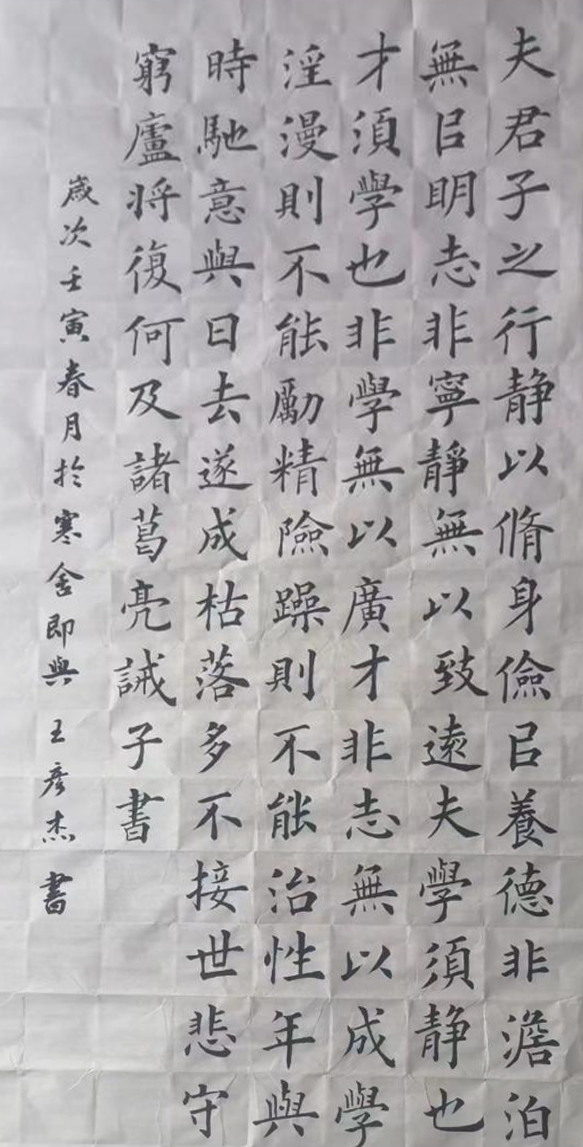 夫君子之行静以脩身儉㠯養德非澹泊
無㠯明志非寧靜無以致遠夫學須静也
才須學也非學無以廣才非志無以成學
淫漫則不能勵精險躁則不能治性年與
時馳意與日去遂成枯落多不接世悲守
窮廬將復何及諸葛亮誡子書
歲次壬寅春月於寒舍即興 王彥杰 書